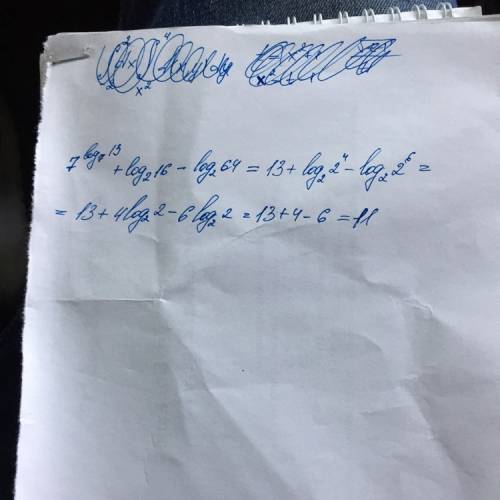 7^{log_7 13} + log_2 16 - log_2 64 = 13 + log_2 2^4 - log_2 2^6 =
= 13 + 4 log_2 2 - 6 log_2 2 = 13 + 4 - 6 = 11